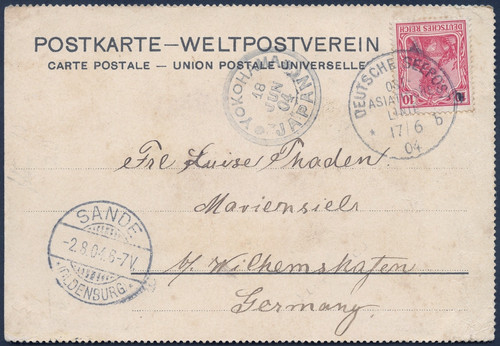 POSTKARTE—WELTPOSTVEREIN
CARTE POSTALE — UNION POSTALE UNIVERSELLE
DEUTSCHES REICH
10
DEUTSCHE SEEPOST
OST
ASIAT
17/6
6
04
YOKOHAMA
JAPAN
18
JUN
04
Frl Luise Thaden
Mariensiels
b/. Wilhemshafen
Germany.
SANDE
-2.8.04.6-7V.
OLDENBURG